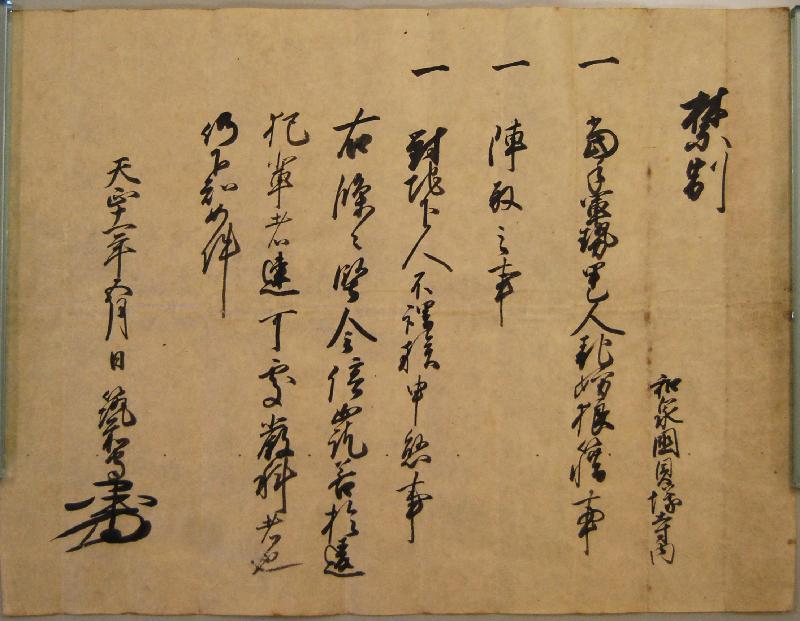 禁制
和泉國貝塚寺内
一 当手軍勢甲乙人乱妨狼藉事
一 陣取之事
一 対地下人不謂族申懸事
右條々堅令停止訖若於違
犯輩者速可處厳科者也
仍下知如件
天正十一年 月 日 筑前守